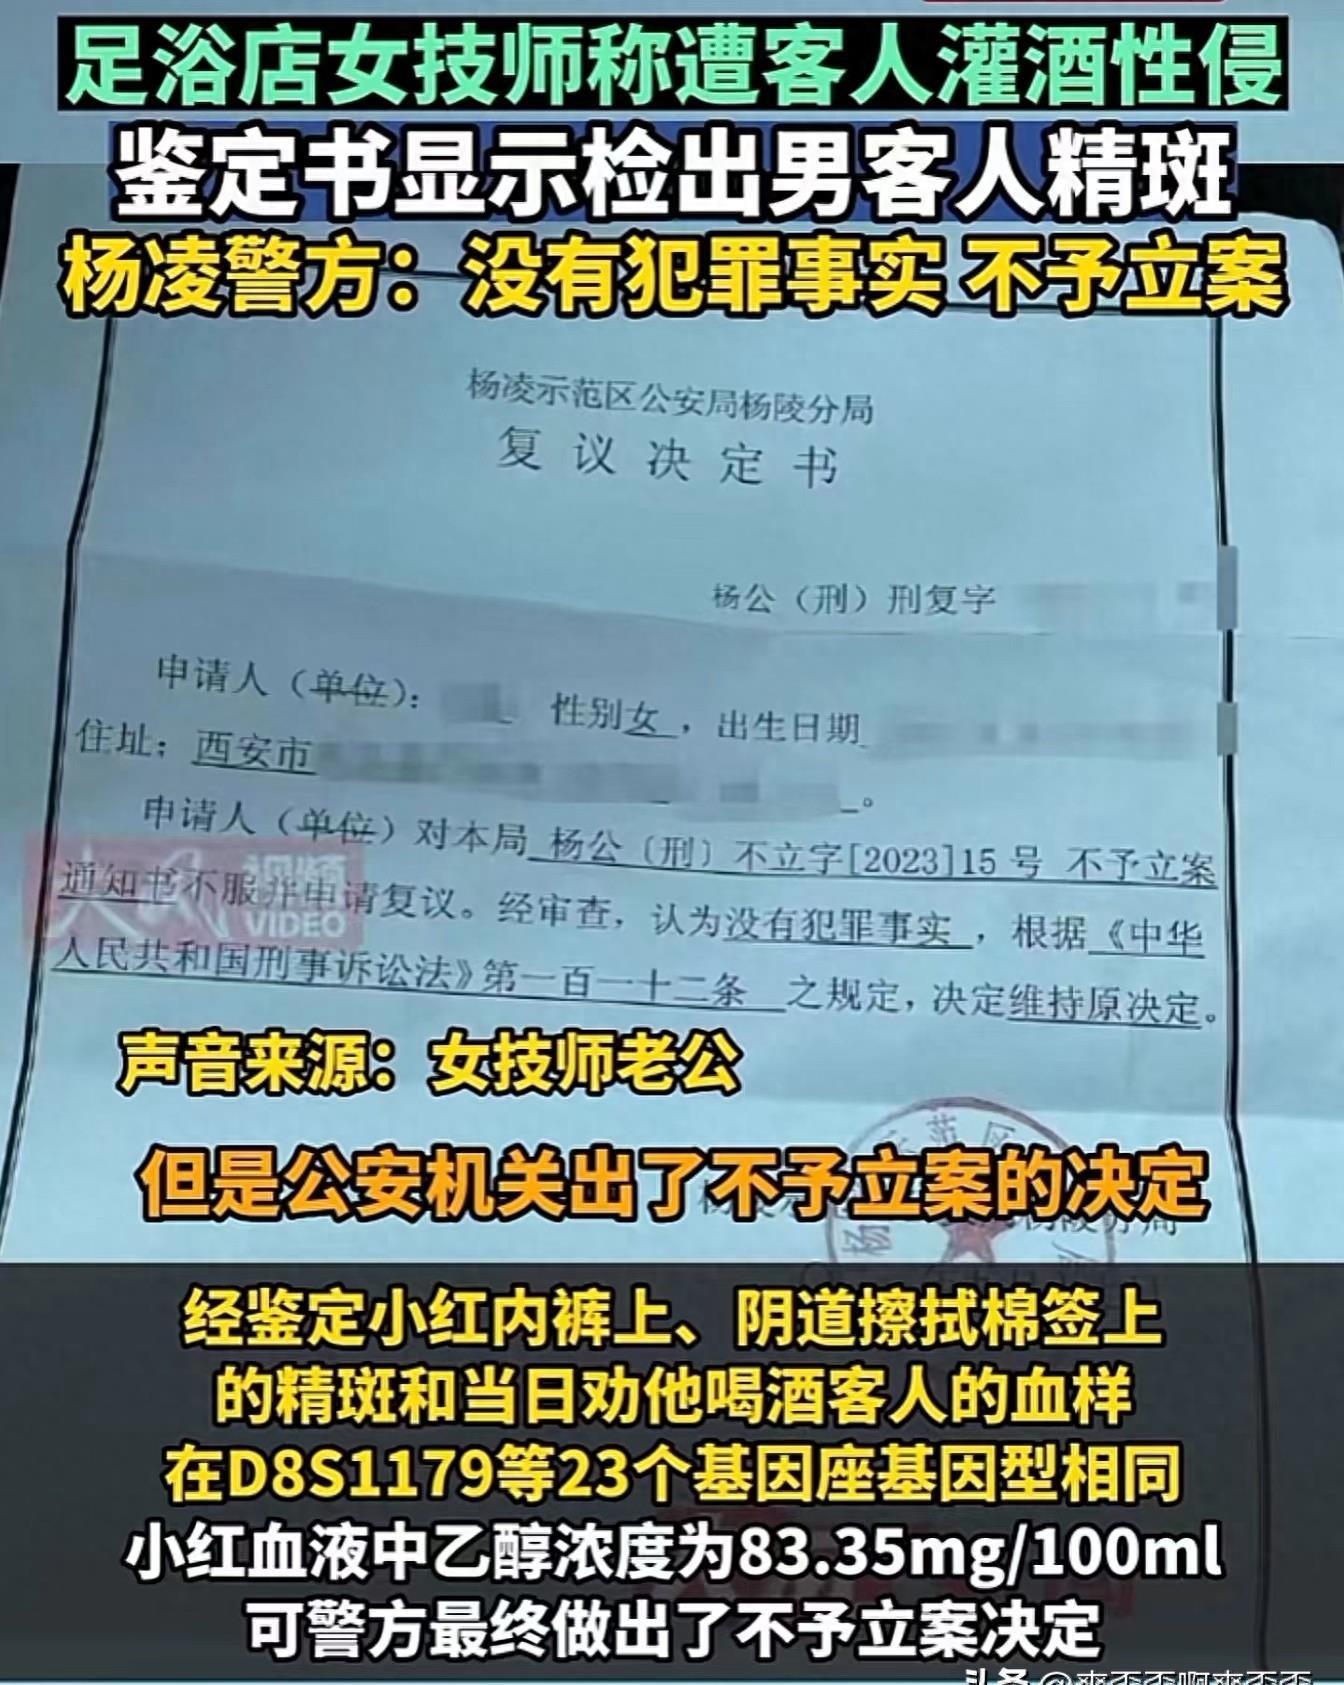 足浴店女技师称遭客人灌酒性侵
鉴定书显示检出男客人精斑
杨凌警方：没有犯罪事实 不予立案
杨凌示范区公安局杨陵分局
复议决定书
杨公（刑）刑复字
申请人（单位）： 性别女，出生日期
住址：西安市 。
申请人（单位）对本局 杨公（刑）不立字[2023]15号 不予立案
通知书不服并申请复议。经审查，认为没有犯罪事实，根据《中华
人民共和国刑事诉讼法》第一百一十二条 之规定，决定维持原决定。
视频
VIDEO
声音来源：女技师老公
但是公安机关出了不予立案的决定
经鉴定小红内裤上、阴道擦拭棉签上
的精斑和当日劝他喝酒客人的血样
在D8S1179等23个基因座基因型相同
小红血液中乙醇浓度为83.35mg/100ml
可警方最终做出了不予立案决定